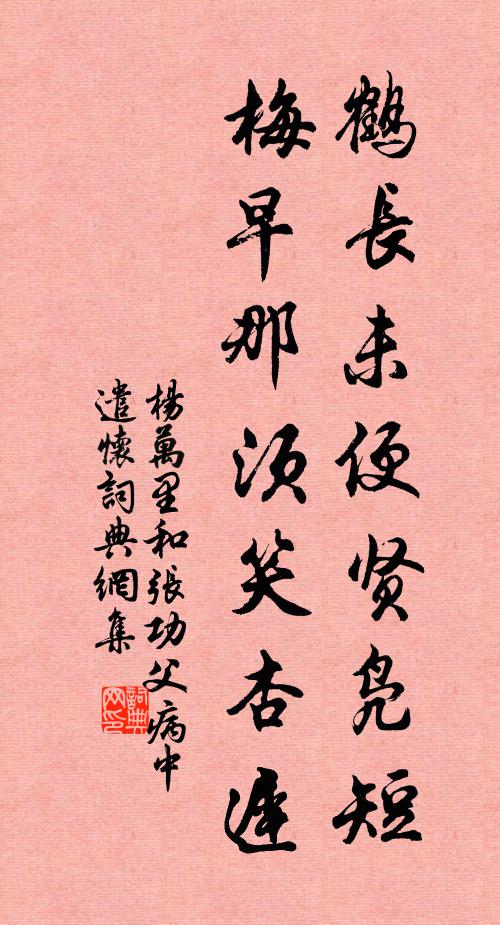 鶴長未便贤凫短
梅早那須笑杏遲
楊萬里和張功父病中
遣懷詞典網集
詞典网印